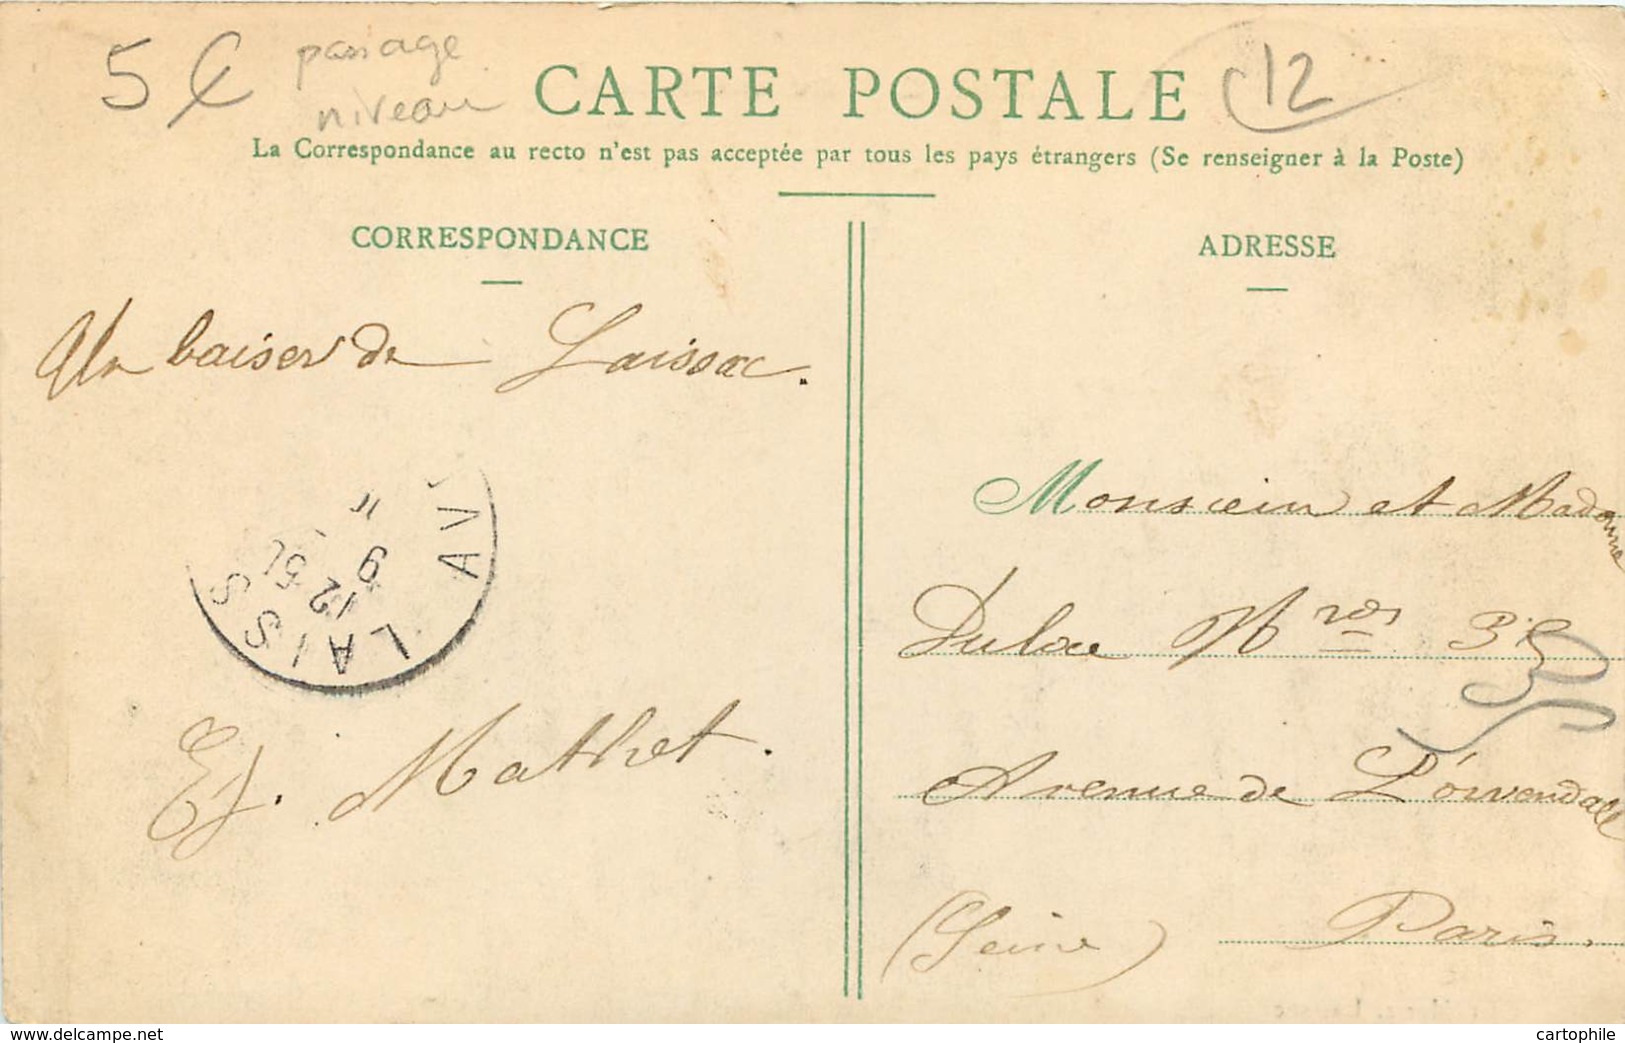 5 €
passage
niveau
12
CARTE POSTALE
La Correspondance au recto n'est pas acceptée par tous les pays étrangers (Se renseigner à la Poste)
CORRESPONDANCE
ADRESSE
Un baiser de Laissac.
LAISS AV
12 5
9
11
E. Mathet.
Monsieur et Madame
Dulac Nros 35
Avenue de Lowendale
(Seine) Paris.
www.delcampe.net
cartophile